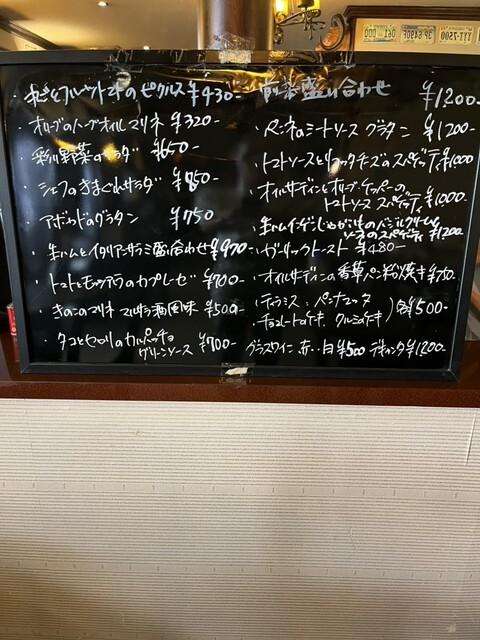 ・ フルーツトマトのピクルス ¥430-
・ オリーブのハーブオイルマリネ ¥320-
・ 彩り野菜のサラダ ¥650-
・ シェフのきまぐれサラダ ¥750-
・ アボカドのグラタン ¥750
・ 生ハムとイタリアンサラミ盛合わせ ¥970-
・ トマトとモッツァラのカプレーゼ ¥700-
・ きのこのマリネ マルサラ酒風味 ¥500-
・ タコとセロリのカルパッチョ
グリーンソース ¥700-
前菜盛り合わせ ¥1200-
・ ペンネのミートソースグラタン ¥1200-
・ トマトソースとリコッタチーズのスパゲティ ¥1000
・ オイルサディンとオリーブ・ケッパーの
トマトソーススパゲティ ¥1000-
・ 生ハム のバジルクリーム
ソースのスパゲティ ¥1200-
・ ガーリックトースト ¥480-
・ オイルサディンの香草パン粉焼き ¥750.
・ ティラミス・パンナコッタ
チョコレートのケーキ クルミのケーキ ) 各¥500-
グラスワイン 赤・白 ¥500 デキャンタ ¥1200-